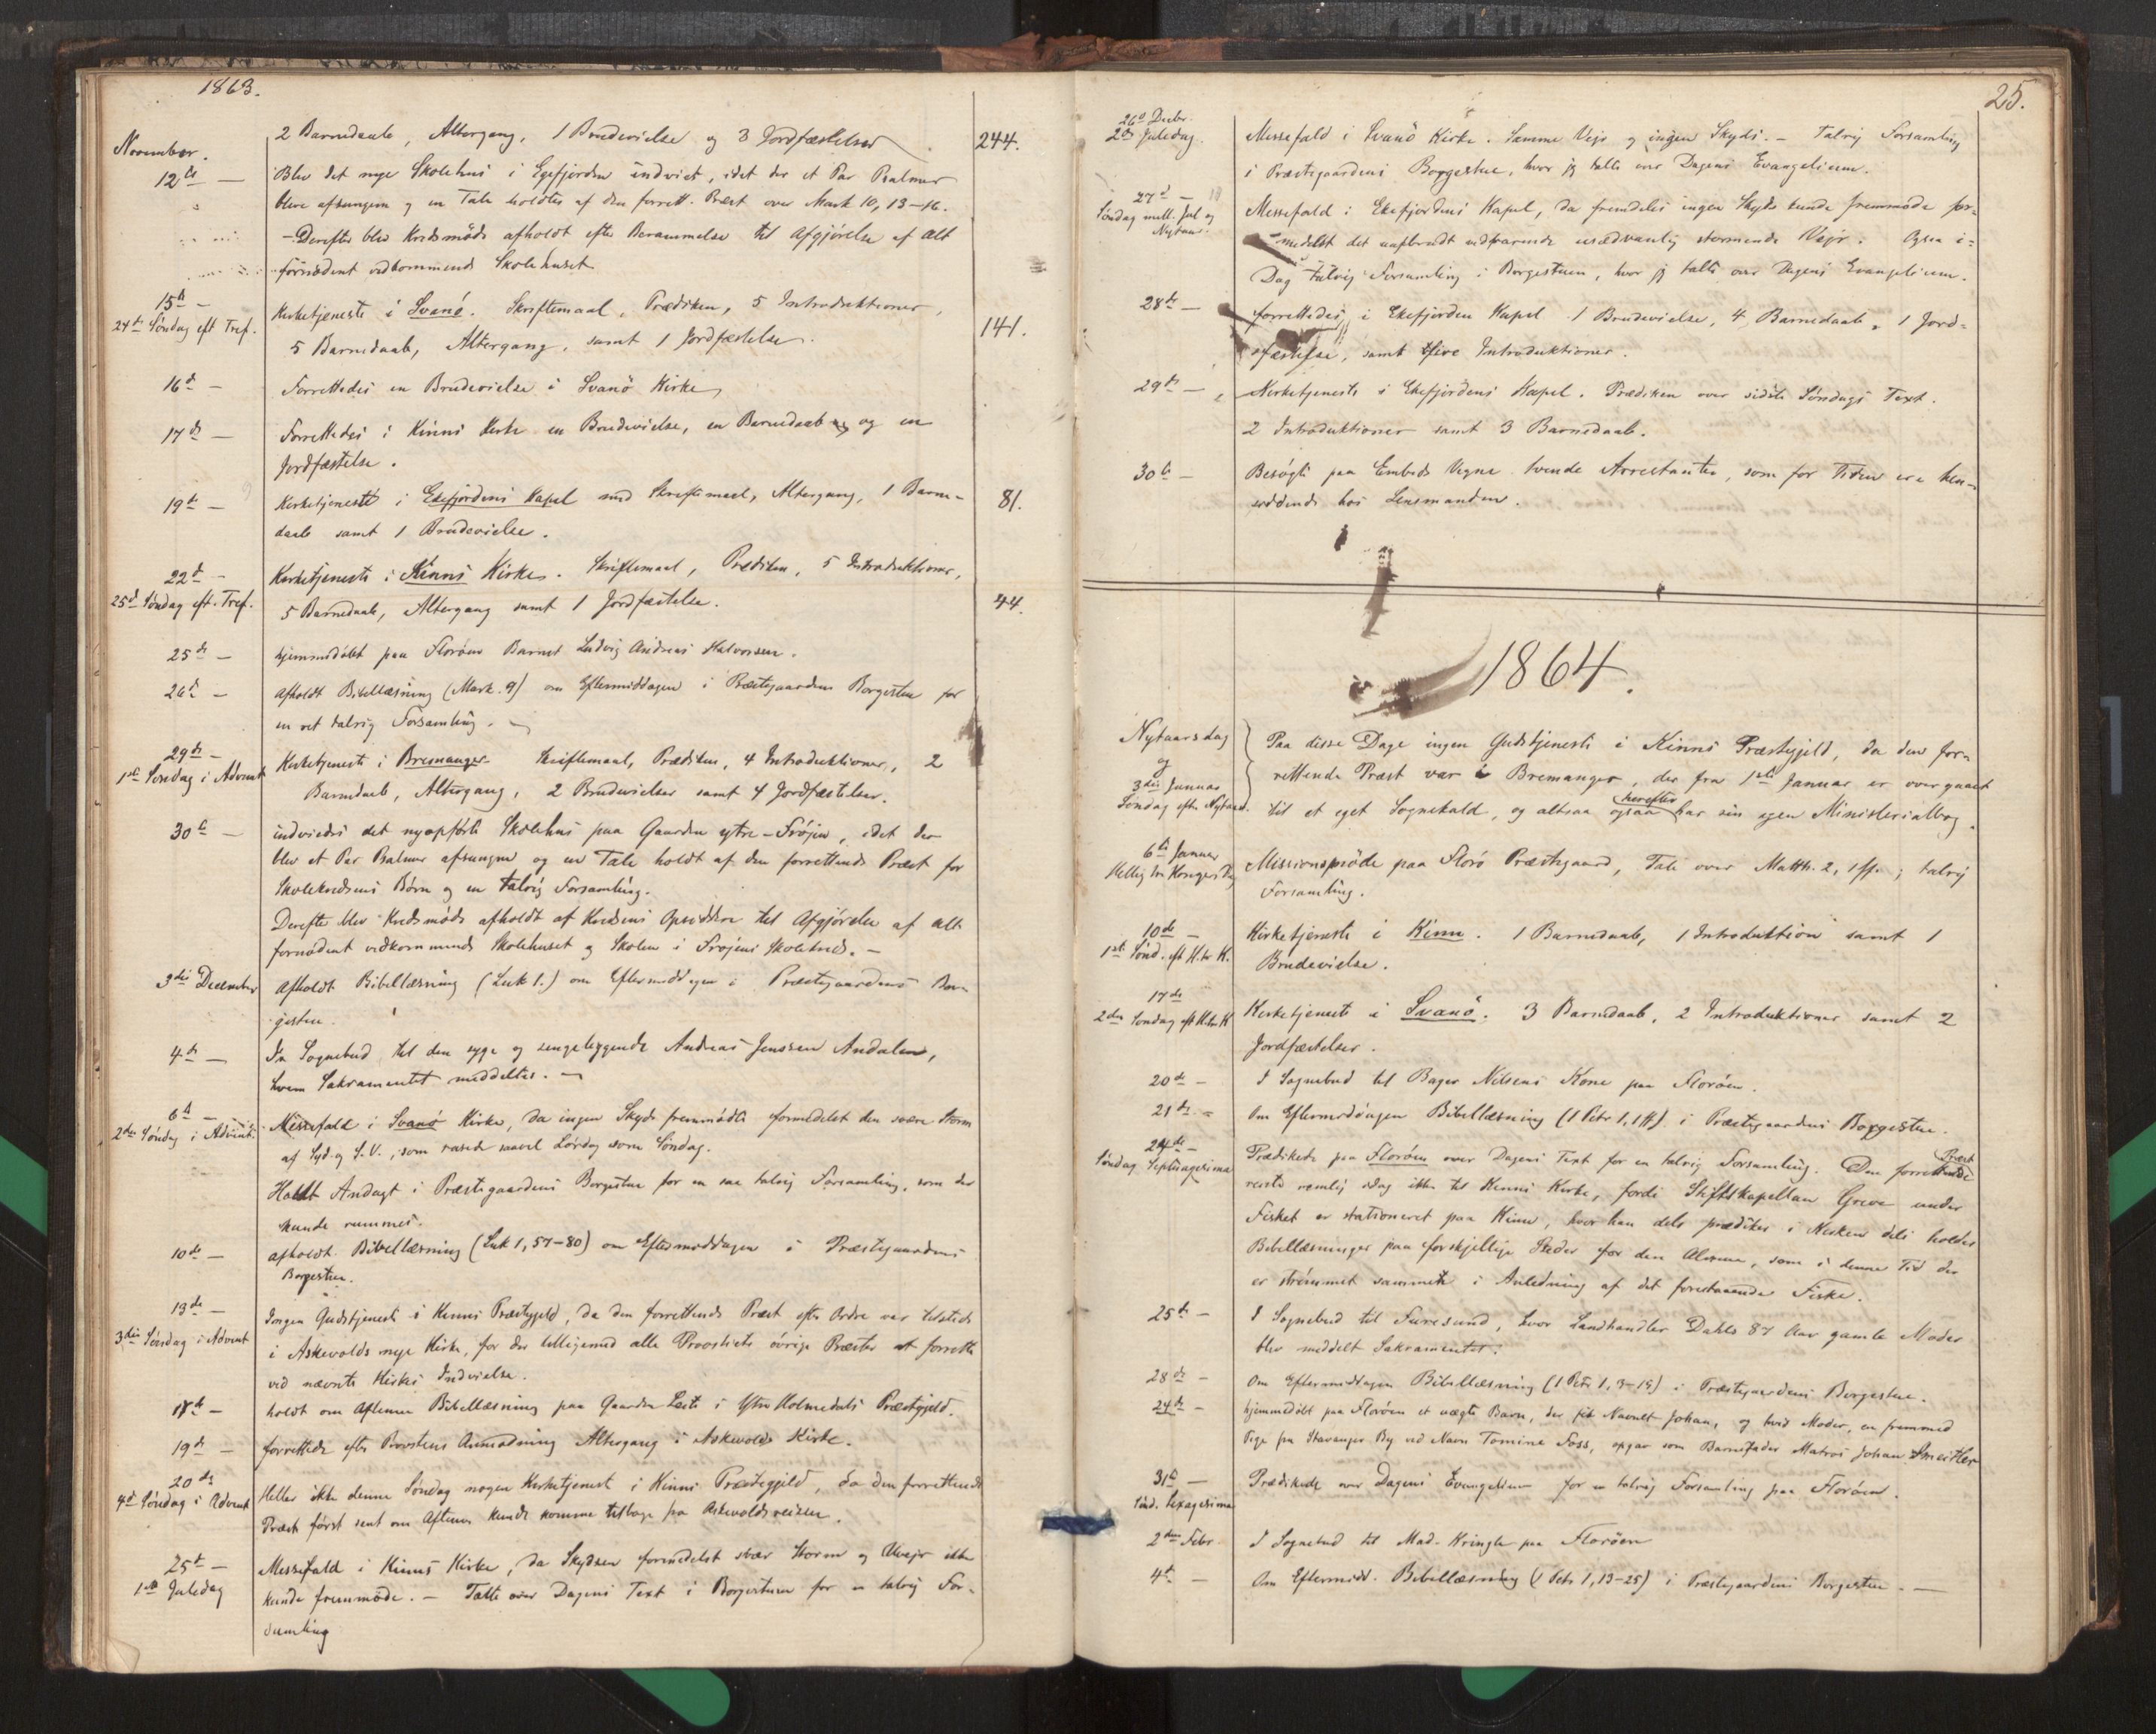 1863.
November.
2 Barnedaab, Altergang, 1 Brudevielse og 3 Jordfæstelser 244.
12te — Blev det nye Skolehus i Egefjorden indviet, idet der et Par Psalmer
bleve afsungen og en Tale holdtes af den forrett. Præst over Mark 10, 13-16.
- Derefter blev Kredsmøde afholdt efter Berammelse til Afgjørelse af alt
fornødent vedkommende Skolehuset
15de —
24de Søndag eft Tref. Kirketjeneste i Svanö. Skriftemaal, Prædiken, 5 Introduktioner,
5 Barnedaab, Altergang, samt 1 Jordfæstelse. 141.
16de — Forrettedes en Brudevielse i Svanö Kirke
17de — Forrettedes i Kinns Kirke en Brudevielse, en Barnedaab og en
Jordfæstelse.
19de — Kirketjeneste i Ekefjordens Kapel med Skriftemaal, Altergang, 1 Barne- 81.
daab samt 1 Brudevielse.
22de —
25de Søndag eft. Tref. Kirketjeneste i Kinns Kirke. Skriftemaal, Prædiken, 5 Introduktioner,
5 Barnedaab, Altergang samt 1 Jordfæstelse. 44.
25de — hjemmedøbt paa Florøen Barnet Ludvig Andreas Halvorsen.
26de — Afholdt Bibellæsning (Mark. 9) om Eftermiddagen i Præstegaardens Borgestue for
en ret talrig Forsamling. —
29de —
1ste Søndag i Advent Kirketjeneste i Bremanger. Skriftemaal, Prædiken, 4 Introduktioner, 2
Barnedaab, Altergang, 2 Brudevielser samt 4 Jordfæstelser.
30te — indviedes det nyopførte Skolehus paa Gaarden ytre-Frøjen, idet der
blev et Par Psalmer afsungne og en Tale holdt af den forrettende Præst for
Skolekredsens Børn og en talrig Forsamling.
Derefter blev Kredsmøde afholdt af Kredsens Opsiddere til Afgjørelse af alt
fornødent vedkommende Skolehuset og Skolen i Frøjens Skolekreds. —
3die December Afholdt Bibellæsning (Luk 1.) om Eftermiddagen i Præstegaardens Bor-
gestue.
4de — In Sognebud til den syge og sengeliggende Andreas Jenssen Andalen,
hvem Sakramentet meddeltes. —
6te —
2den Søndag i Advent. Messefald i Svanö Kirke, da ingen Skyds fremmødte formedelst den svære Storm
af Syd og S.V., som rasede saavel Lørdag som Søndag.
Holdt Andagt i Præstegaardens Borgestue for en saa talrig Forsamling, som der
kunde rummes.
10de — afholdt Bibellæsning (Luk 1, 57-80) om Eftermiddagen i Præstegaardens
Borgestue.
13de —
3die Søndag i Advent Ingen Gudstjeneste i Kinns Præstegjeld, da den forrettende Præst efter Ordre var tilstede
i Askevolds nye Kirke, for der tilligemed alle Provstiets övrige Præster at forrette
ved nævnte Kirkes Indvielse.
18de — holdt om Aftenen Bibellæsning paa Gaarden Leite i Ytre Holmedals Præstegjeld.
19de — forrettede efter Provstens Anmodning Altergang i Askevolds Kirke.
20de
4de Søndag i Advent Heller ikke denne Søndag nogen Kirketjenest i Kinns Præstegjeld, da den forrettende
Præst først sent om Aftenen kunde komme tilbage fra Askevoldsreisen.
25de —
1ste Juledag Messefald i Kinns Kirke, da Skydsen formedelst svær Storm og Uvejr ikke
kunde fremmøde. — Talte over Dagens Text i Borgestuen for en talrig For-
samling
25.
26de Decbr.
2den Juledag. Messefald i Svanö Kirke. Samme Vejr og ingen Skyds. — Talrig Forsamling
i Præstegaardens Borgestue, hvor jeg talte over Dagens Evangelium.
27de —
Søndag mell. Jul og
Nytaar. Messefald i Ekefjordens Kapel, da fremdeles ingen Skyds kunde fremmøde for-
medelst det uafbrudt vedvarende usædvanlig stormende Vejr. Ogsaa i-
Dag talrig Forsamling i Borgestuen, hvor jeg talte over Dagens Evangelium.
28de — forrettedes i Ekefjorden Kapel 1 Brudevielse, 4 Barnedaab, 1 Jord-
fæstelse, samt tvive Introduktioner.
29de — Kirketjeneste i Ekefjordens Kapel. Prædiken over sidste Søndags Text.
2 Introduktioner samt 3 Barnedaab.
30te — Besøgte paa Embeds Vegne tvende Arrestanter, som for Tiden ere hen-
siddende hos Lensmanden.
1864.
Nytaarsdag
og
3die Januar
Søndag efter Nytaar. Paa disse Dage ingen Gudstjeneste i Kinns Præstegjeld, da den for-
rettende Præst var i Bremanger, der fra 1ste Januar er overgaaet
til et eget Sognekald, og altsaa ogsaa herefter har sin egen Ministerialbog.
6te Januar
Hellig tre Kongers Dag Missionsmøde paa Florö Præstegaard, Tale over Matth. 2, 1 ff.; talrig
Forsamling.
10de —
1ste Sönd. eft H. tr. K. Kirketjeneste i Kinn. 1 Barnedaab, 1 Introduktion samt 1
Brudevielse.
17de
2den Søndag eft H. tr. K Kirketjeneste i Svanö. 3 Barnedaab, 2 Introduktioner samt 2
Jordfæstelser.
20de — I Sognebud til Bager Nilsens Kone paa Florøen.
21de — Om Eftermiddagen Bibellæsning (1 Petr 1, 1 ff) i Præstegaardens Borgestue.
24de —
Søndag Septuagesima Prædikede paa Florøen over Dagens Text for en talrig Forsamling. Den forrettende Præst
reiste nemlig idag ikke til Kinns Kirke, fordi Stiftskapellan Greve under
Fisket er stationeret paa Kinn, hvor han dels prædiker i Kirken dels holder
Bibellæsninger paa forskjellige Steder for den Almue, som i denne Tid der
er strømmet sammen i Anledning af det forestaaende Fiske.
25de — I Sognebud til Furesund, hvor Landhandler Dahls 87 Aar gamle Moder
blev meddelt Sakramentet.
28de — Om Eftermiddagen Bibellæsning (1 Petr 1, 3-15) i Præstegaardens Borgestue.
24de — hjemmedøbt paa Florøen et uægte Barn, der fik Navnet Johan, og hvis Moder, en fremmed
Pige fra Stavanger By ved Navn Tomine Foss, opgav som Barnefader Matros Johan
31te —
Sönd. Sexagesima Prædikede over Dagens Evangelium for en talrig Forsamling paa Florøen.
2den Febr. I Sognebud til Mad. Kringle paa Florøen
4de — Om Eftermidd. Bibellæsning (1 Petr 1, 13-25) i Præstegaardens Borgestue. —